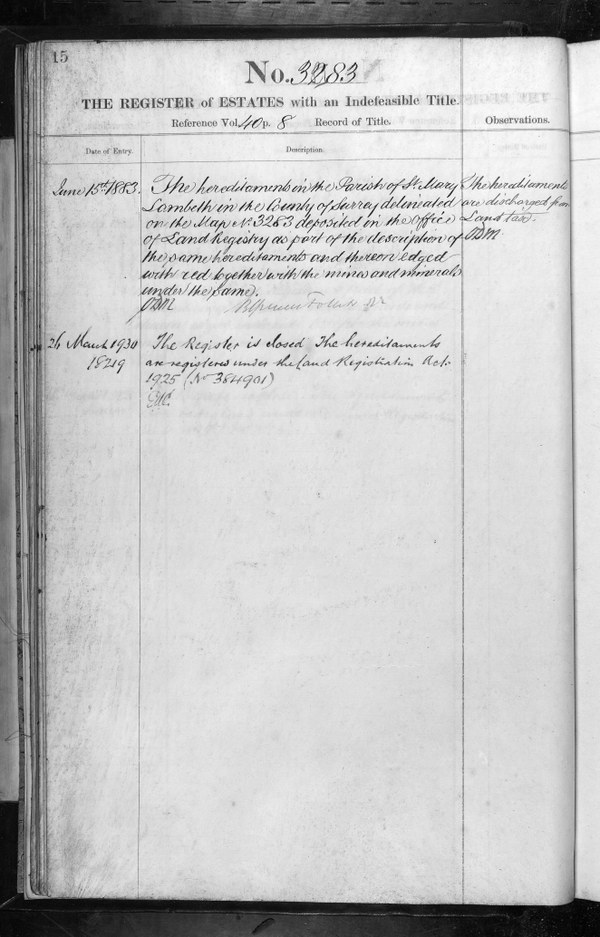 15
No. 3283
THE REGISTER of ESTATES with an Indefeasible Title.
Reference Vol. 40 p. 8 Record of Title.
Observations.
Date of Entry.
Description.
June 15th 1883.
The hereditaments in the Parish of St. Mary
Lambeth in the County of Surrey delineated
on the Map No. 3283 deposited in the Office
of Land Registry as part of the description of
the same hereditaments and thereon edged
with red together with the mines and minerals
under the same.
The hereditaments
are discharged from
Land tax.
26 March 1930
18219
The Register is closed The hereditaments
are registered under the Land Registration Act
1925 (No 384901)